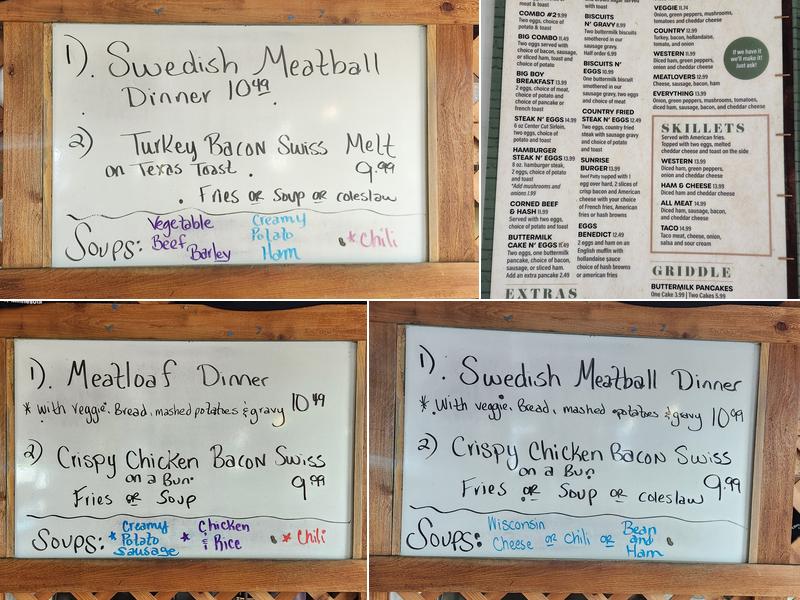 1). Swedish Meatball
Dinner 10 49
2) Turkey Bacon Swiss Melt
on Texas Toast . 9.99
. Fries or Soup or coleslaw
Soups: Vegetable Beef Barley
Creamy Potato Ham
* Chili
meat & toast
COMBO #2 9.99
Two eggs, choice of
potato & toast
BIG COMBO 11.49
Two eggs served with
choice of bacon, sausage,
or sliced ham, toast and
choice of potato
BIG BOY
BREAKFAST 13.99
2 eggs, choice of meat,
choice of potato and
choice of pancake or
french toast
STEAK N' EGGS 14.99
6 oz Center Cut Sirloin,
two eggs, choice of
potato and toast
HAMBURGER
STEAK N' EGGS 13.99
8 oz. hamburger steak,
2 eggs, choice of potato
and toast
*Add mushrooms and
onions 1.99
CORNED BEEF
& HASH 11.99
Served with two eggs,
choice of potato and toast
BUTTERMILK
CAKE N' EGGS 11.49
Two eggs, one buttermilk
pancake, choice of bacon,
sausage, or sliced ham.
Add an extra pancake 2.49
EXTRAS
meat and toast
BISCUITS
N' GRAVY 8.99
Two buttermilk biscuits
smothered in our
sausage gravy.
Half order 6.99
BISCUITS N'
EGGS 10.99
One buttermilk biscuit
smothered in our
sausage gravy, two eggs
and choice of meat
COUNTRY FRIED
STEAK N' EGGS 12.49
Two eggs, country fried
steak with sausage gravy,
choice of potato
and toast
SUNRISE
BURGER 13.99
Beef Patty topped with 1
egg over hard, 2 slices of
crisp bacon and American
cheese with your choice
of French fries, American
fries or hash browns
EGGS
BENEDICT 12.49
2 eggs and ham on an
English muffin with
hollandaise sauce
choice of hash browns
or american fries
VEGGIE 11.74
Onion, green peppers, mushrooms,
tomatoes and cheddar cheese
COUNTRY 12.99
Turkey, bacon, hollandaise,
tomato, and onion
WESTERN 11.99
Diced ham, green peppers,
onion and cheddar cheese
MEATLOVERS 12.99
Cheese, sausage, bacon, ham
EVERYTHING 13.99
Onion, green peppers, mushrooms, tomatoes,
diced ham, sausage, bacon, and
cheddar cheese
If we have it
we'll make it!
Just ask!
SKILLETS
Served with American fries.
Topped with two eggs, melted
cheddar cheese and toast on the side
WESTERN 13.99
Diced ham, green peppers,
onion and cheddar cheese
HAM & CHEESE 13.99
Diced ham and cheddar cheese
ALL MEAT 14.99
Diced ham, sausage, bacon,
and cheddar cheese
TACO 14.99
Taco meat, cheese, onion,
salsa and sour cream
GRIDDLE
BUTTERMILK PANCAKES
One Cake 3.99 | Two Cakes 5.99
1). Meatloaf Dinner
* With veggie. Bread, mashed potatoes & gravy 10 49
2) Crispy Chicken Bacon Swiss
on a Bun. 9 99
Fries or Soup
Soups: * Creamy Potato Sausage
* Chicken & Rice
* Chili
1). Swedish Meatball Dinner
* With veggie. Bread, mashed potatoes & gravy 10 99
2) Crispy Chicken Bacon Swiss
on a Bun
Fries or Soup or coleslaw 9.99
Soups: Wisconsin Cheese or Chili or Bean and Ham